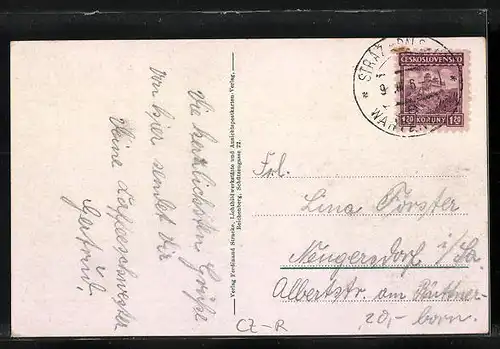 Die herzlichsten Grüße
von hier sendet Dir
Deine
Gertrud.
Verlag Ferdinand Stracke, Lichtbildwerkstätte und Ansichtspostkarten-Verlag,
Reichenberg, Schützengasse 22.
STRÁŽ
WARTEN
ČESKOSLOVENSKO
1.20 KORUNY 1.20
Frl.
Lina Förster
Neugersdorf i/Sa
Albertstr. am Büttner-
20,- born.
CZ-R